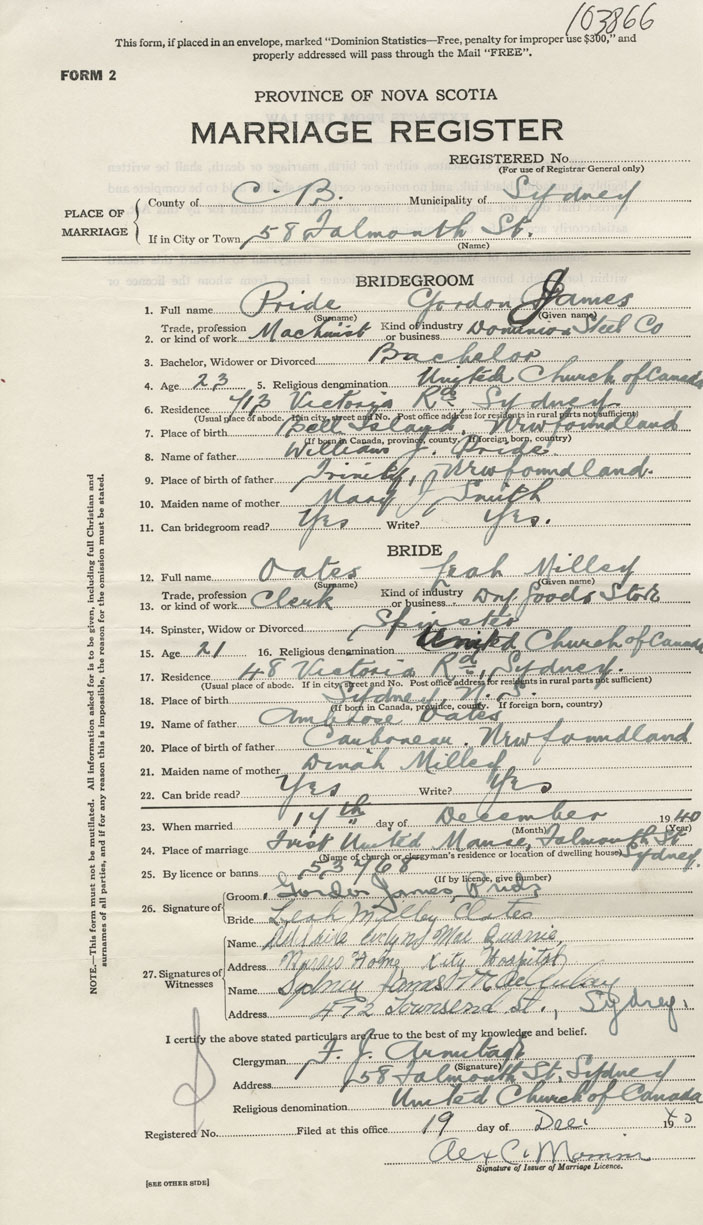 103866
This form, if placed in an envelope, marked "Dominion Statistics—Free, penalty for improper use $300," and
properly addressed will pass through the Mail "FREE".
FORM 2
PROVINCE OF NOVA SCOTIA
MARRIAGE REGISTER
REGISTERED No.
(For use of Registrar General only)
PLACE OF MARRIAGE
County of C. B. Municipality of Sydney
If in City or Town 58 Falmouth St.
(Name)
BRIDEGROOM
1. Full name Pride Gordon James
(Surname) (Given name)
2. Trade, profession or kind of work Machinist Kind of industry or business Dominion Steel Co
3. Bachelor, Widower or Divorced Bachelor
4. Age 23 5. Religious denomination United Church of Canada
6. Residence 713 Victoria Rd. Sydney
(Usual place of abode. If in city, street and No. Post office address for residents in rural parts not sufficient)
7. Place of birth Bell Island, Newfoundland
(If born in Canada, province, county. If foreign born, country)
8. Name of father William J. Pride
9. Place of birth of father Trinity, Newfoundland.
10. Maiden name of mother Mary J Smith
11. Can bridegroom read? Yes Write? Yes.
BRIDE
12. Full name Oates Leah Milley
(Surname) (Given name)
13. Trade, profession or kind of work Clerk Kind of industry or business Dry Goods Store
14. Spinster, Widow or Divorced Spinster
15. Age 21 16. Religious denomination United Church of Canada
17. Residence 48 Victoria Rd, Sydney.
(Usual place of abode. If in city, street and No. Post office address for residents in rural parts not sufficient)
18. Place of birth Sydney N. S.
(If born in Canada, province, county. If foreign born, country)
19. Name of father Ambrose Oates
20. Place of birth of father Carbonear, Newfoundland
21. Maiden name of mother Dinah Milley
22. Can bride read? Yes Write? Yes
23. When married 14th day of December 1940
(Month) (Year)
24. Place of marriage First United Manse, Falmouth St Sydney.
(Name of church or clergyman's residence or location of dwelling house)
25. By licence or banns 53768
(If by licence, give number)
26. Signature of
Groom Gordon James Pride
Bride Leah Milley Oates
27. Signatures of Witnesses
Name Evelyn Mac Quarrie
Address Nurses Home City Hospital
Name Sydney James
Address 472 Townsend St., Sydney.
I certify the above stated particulars are true to the best of my knowledge and belief.
Clergyman F. J. Armitage
(Signature)
Address 58 Falmouth St. Sydney
Religious denomination United Church of Canada
Registered No. Filed at this office 19 day of Dec. 1940
Alex C.
Signature of Issuer of Marriage Licence.
[SEE OTHER SIDE]
NOTE.—This form must not be mutilated. All information asked for is to be given, including full Christian and
surnames of all parties, and if for any reason this is impossible, the reason for the omission must be stated.